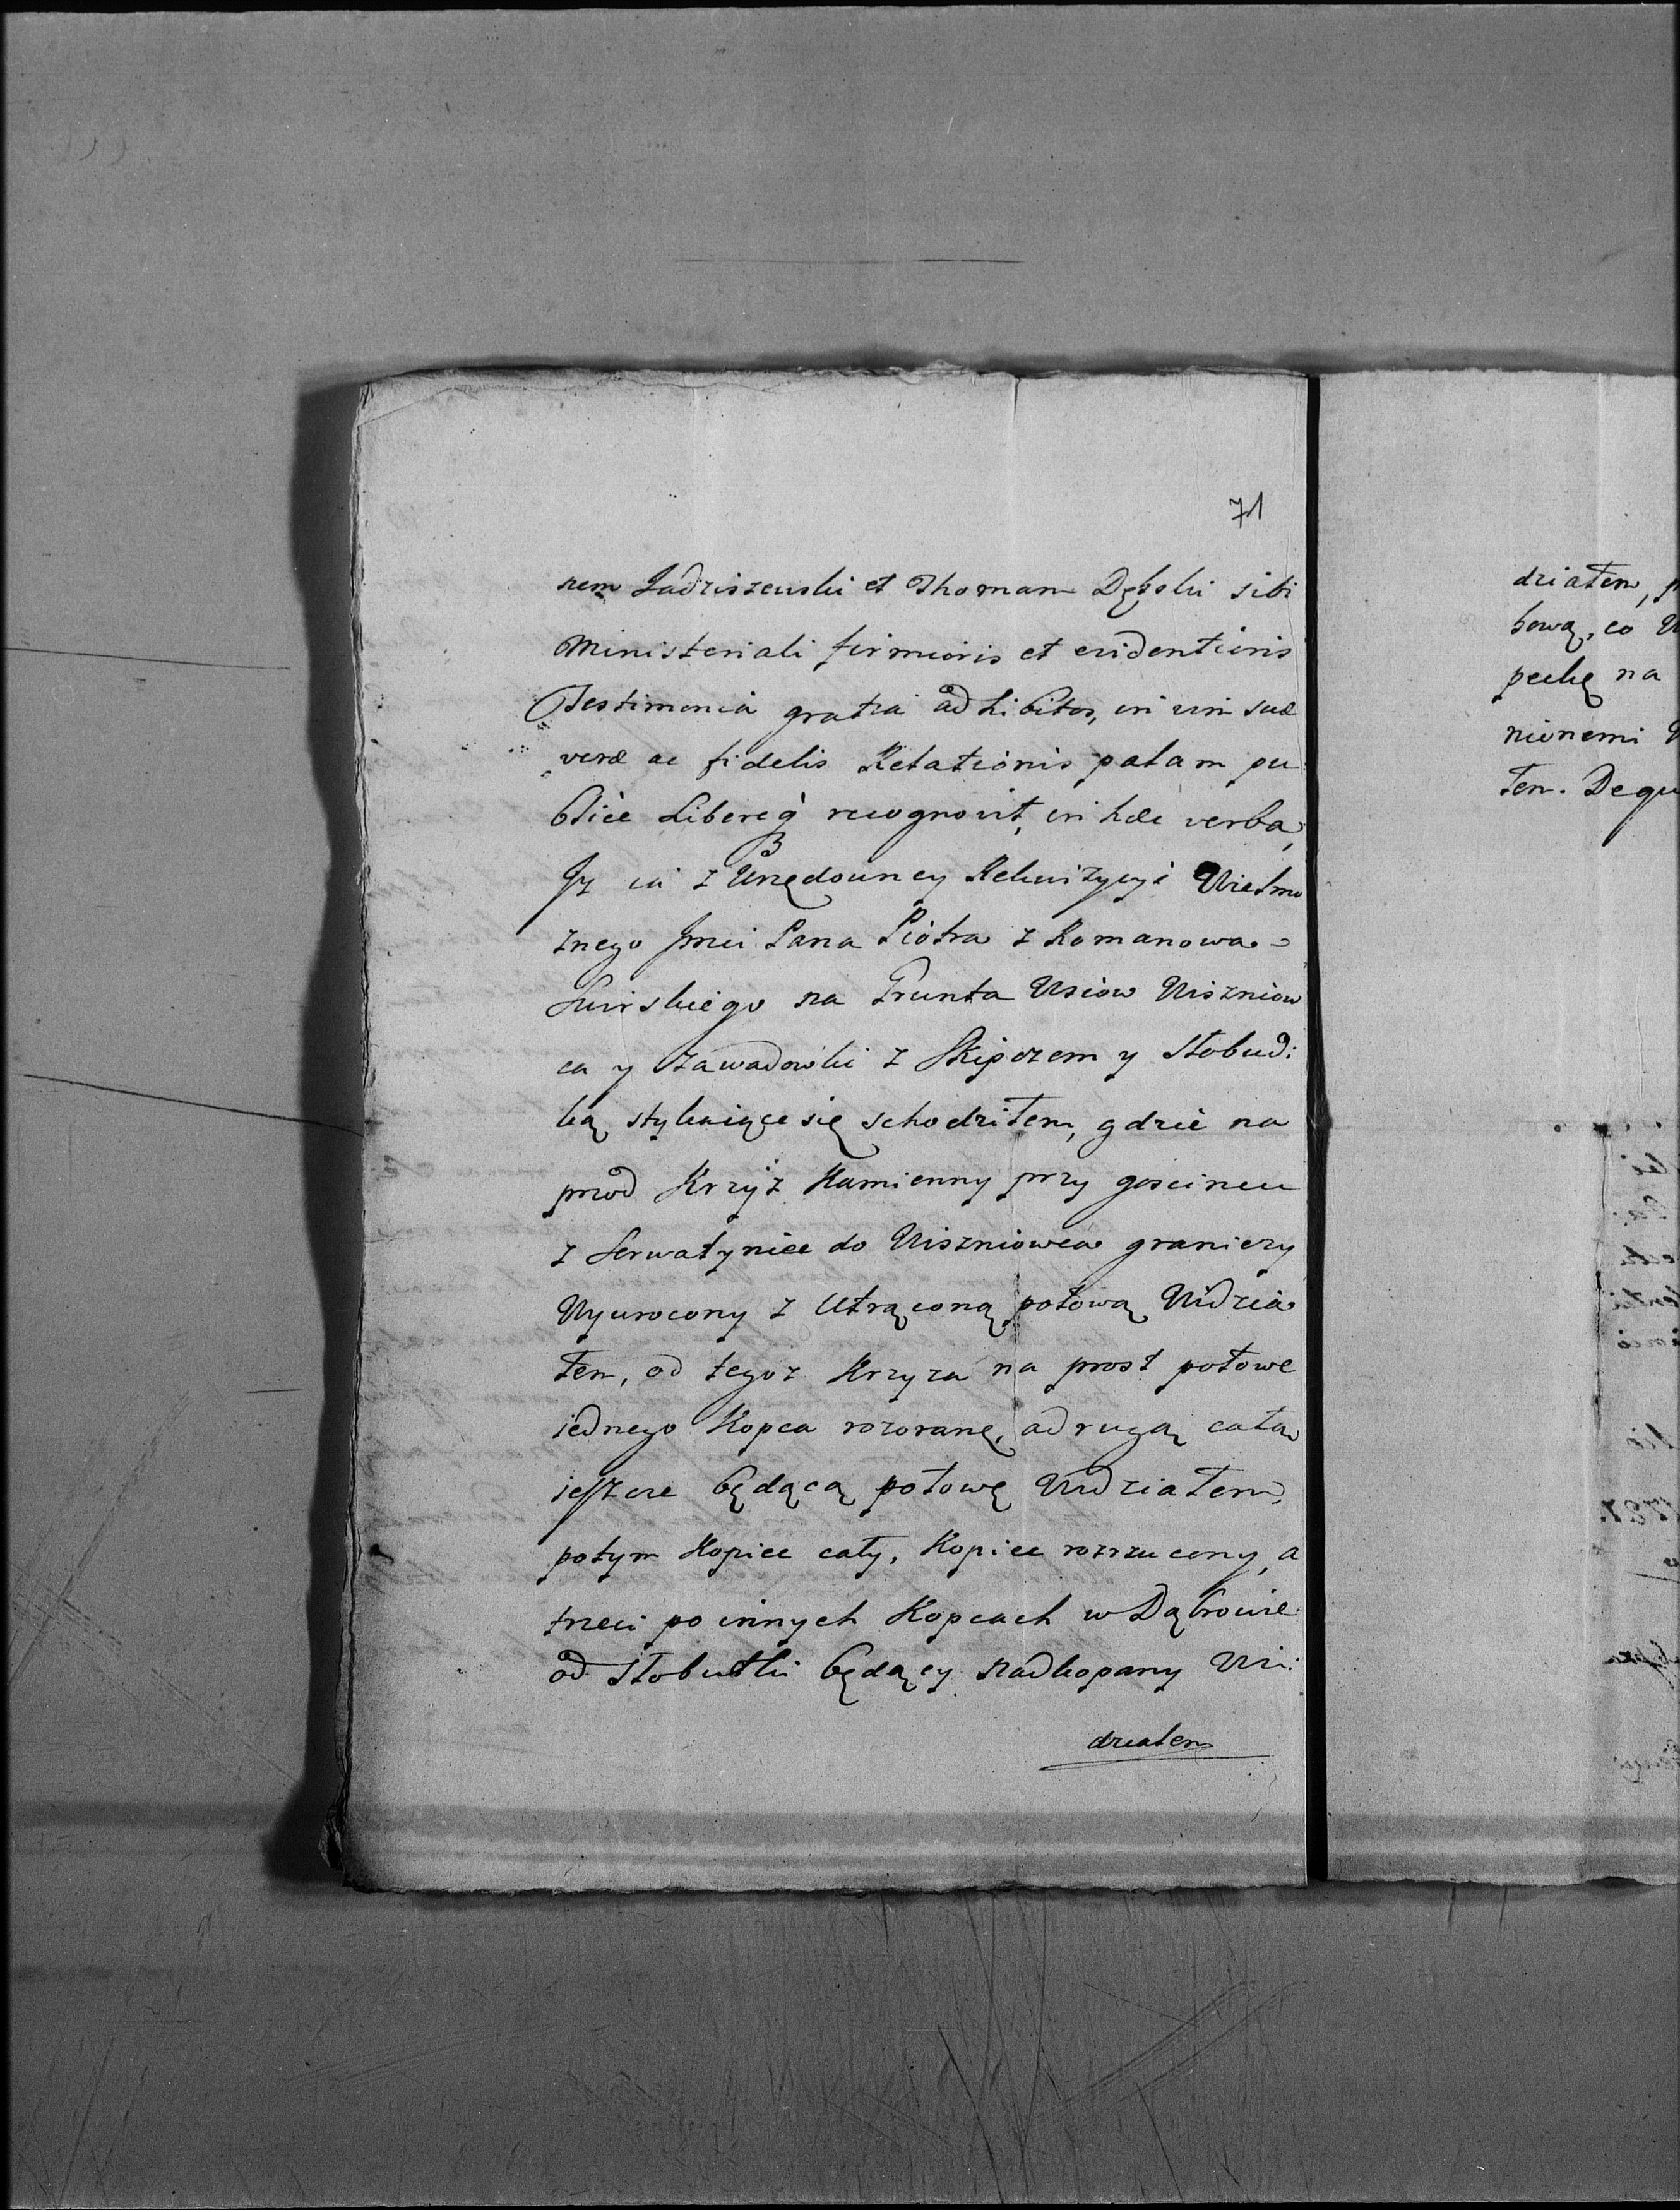 71
nem Jadziszewski et Thomam Dębski sibi
Ministeriali firmioris et evidentioris
Testimonià gratia adhibitos, in vim suæ
veræ ac fidelis Relationis palam pu
blicè Libereq recognovit, in hæc verba,
Jż ia z Urzędowney Rekwizycyi Wielmo
żnego Jmci Pana Piotra z Romanowa
Swirskiego na Grunta Wsiow Wiszniow
ca y Zawadowki z Skipczem y Słobud:
ką stykaiące się schodziłem, gdzie na
przod Krzyż Kamienny przy goscincu
z Serwatyniec do Wiszniowca graniczy
Wywrocony z Utrąconą połową Widzia
łem, od tegoz Krzyza na prost połowe
iednego Kopca rozoranę, adrugą całą
ieszcze będącą połowę Widziałem,
potym Kopiec cały, Kopiec rozrzucony, a
trzeci po innych Kopcach w Dąbrowie
od Słobutki będący nadkopany Wi:
działem
działem, p
bową, co
peckę na
nionemi
łem. Degu
1787.